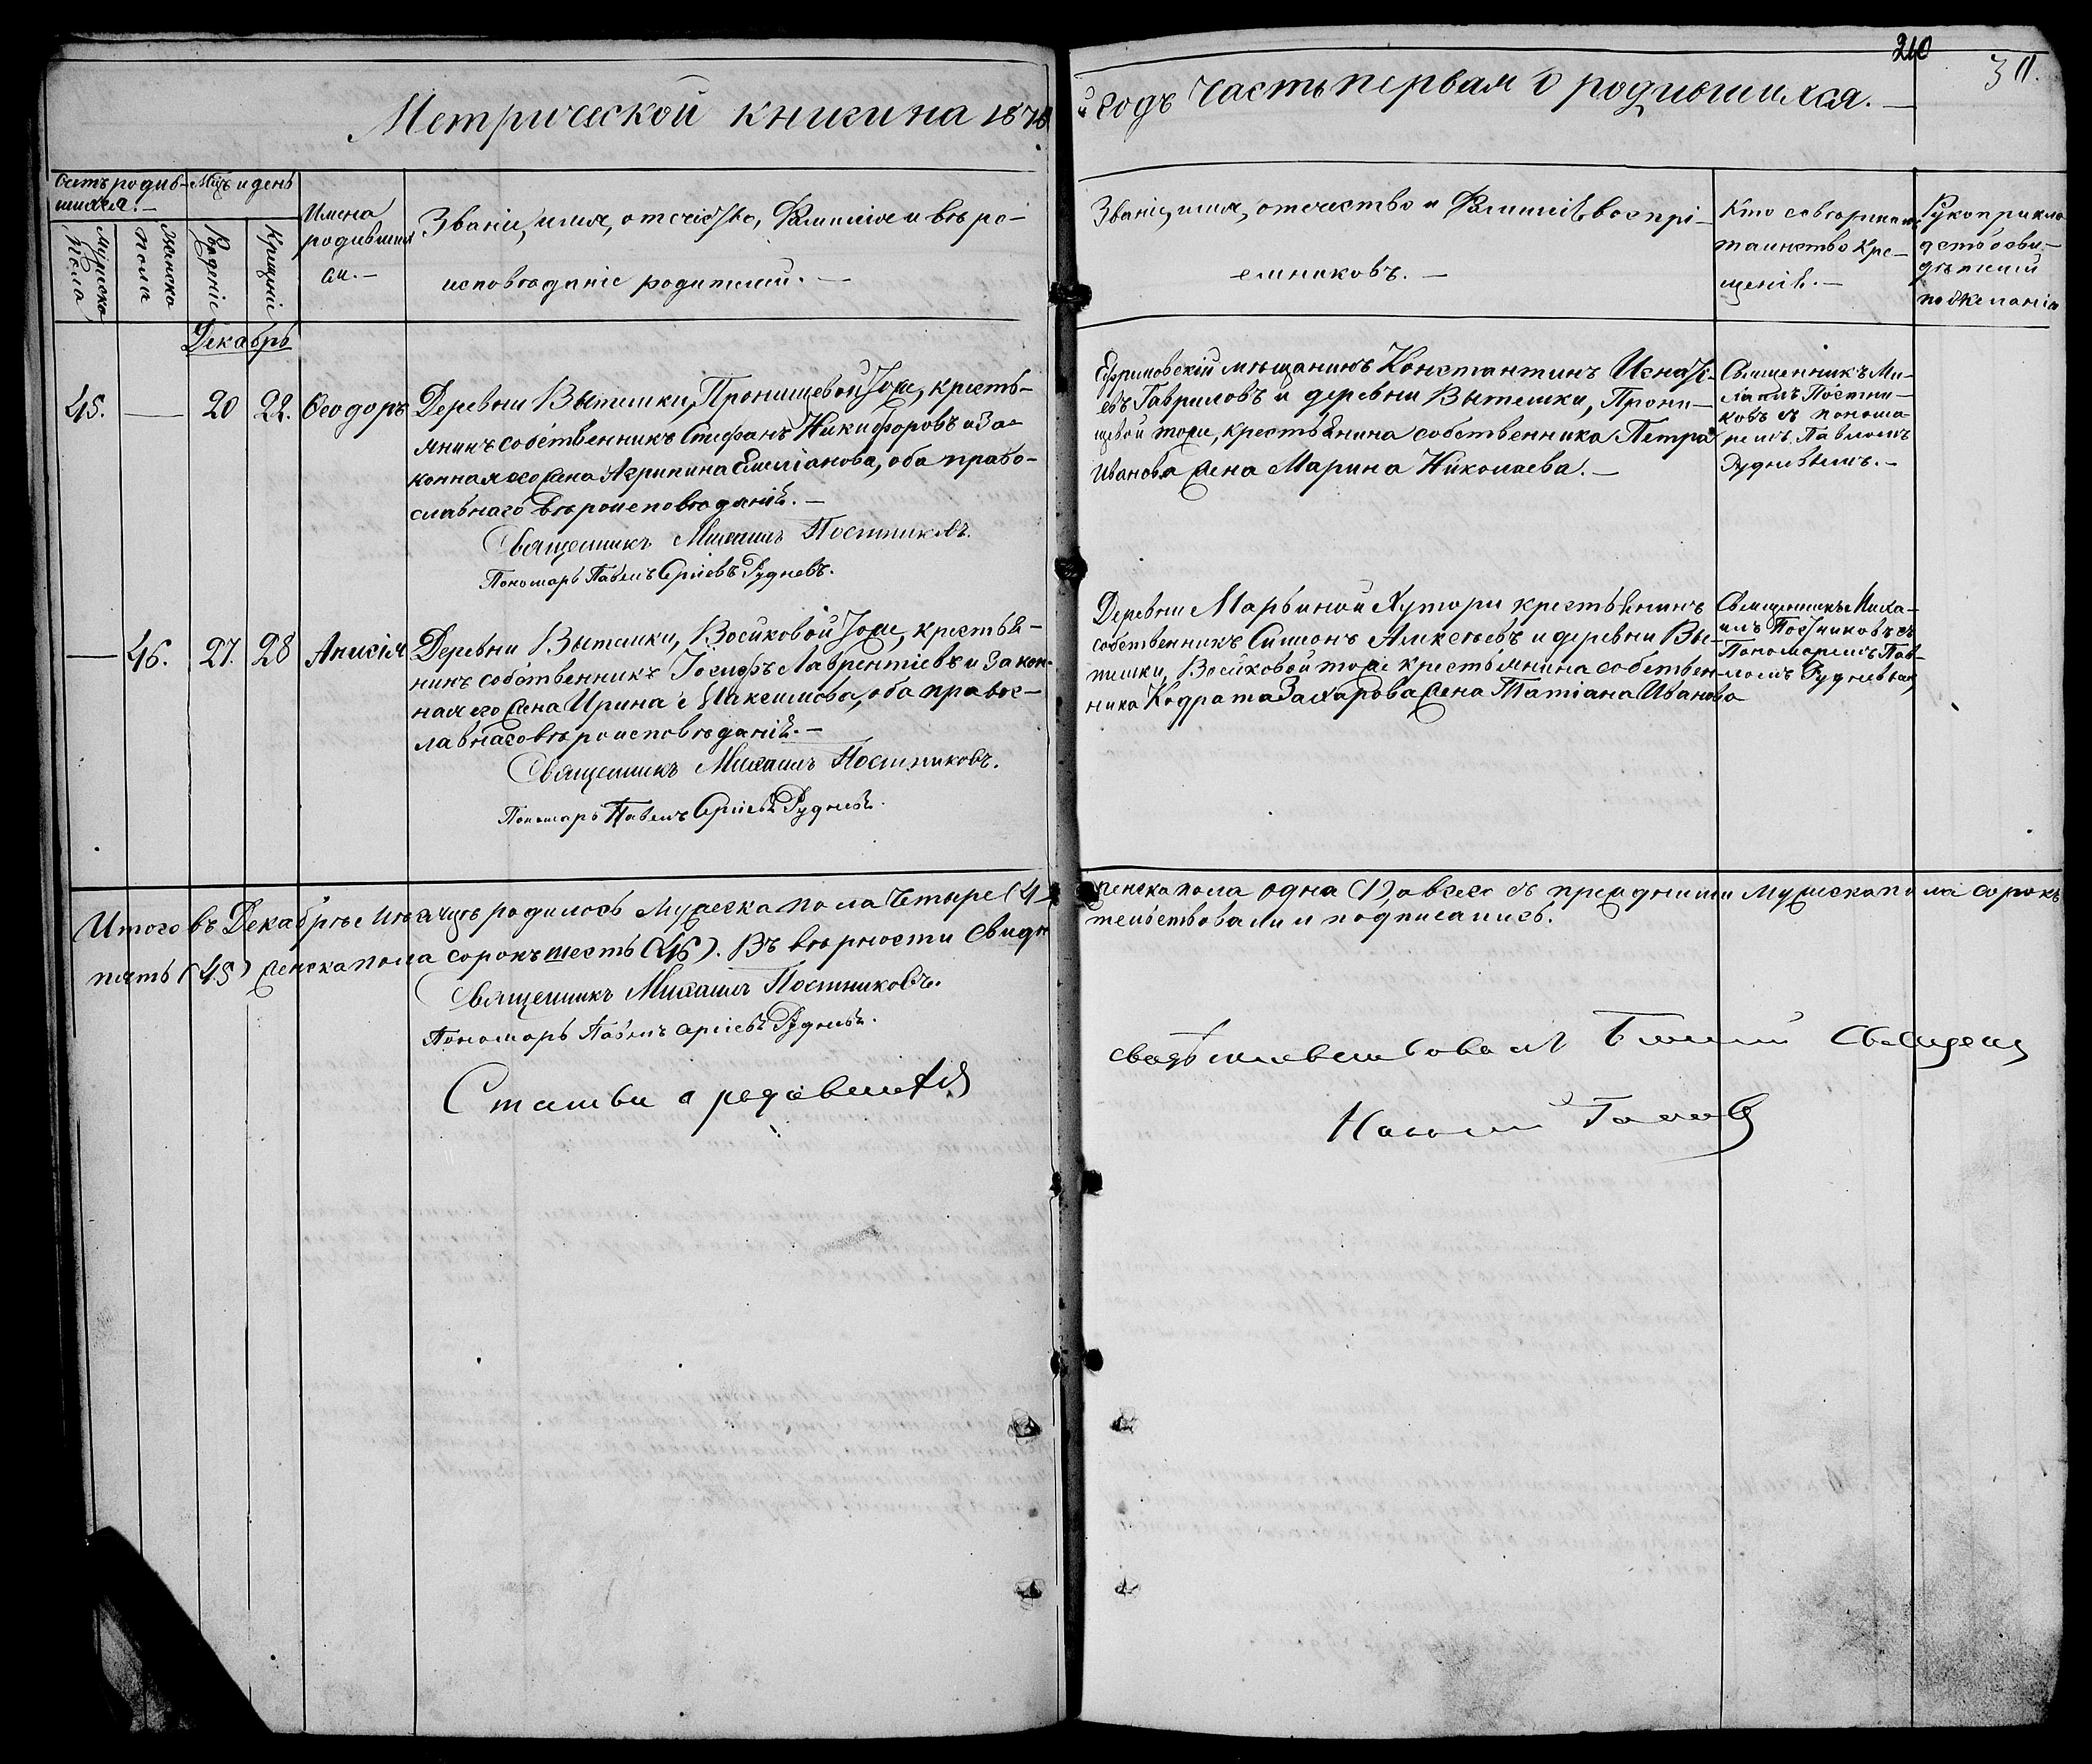 210
311.
Метрической книги на 1878
й годъ часть первая о родившихся. —
Счетъ родив-
шихся. —
Мужеска
пола
Женска
пола
Мцъ и день
Рожденіе
Крещеніе
Имена
родивших
ся. —
Званіе, имя, отчество, Фамилія и вѣро-
исповѣданіе родителей. —
Званіе, имя, отчество и Фамилія воспрі-
емниковъ. —
Кто совершалъ
таинство Кре-
щенія. —
Рукоприкла
дство сви-
дѣтелей
по желанію
Декабрь
45. — 20 22. Ѳеодоръ
Деревни Вытемки, Пронищевой тоже, кресть-
янинъ собственникъ Стефанъ Никифоровъ и За-
конная его жена Агрипина Емеліанова, оба право-
славнаго вѣроисповѣданія. —
Священникъ Михаилъ Постниковъ.
Пономарь Павелъ Сергіевъ Рудневъ.
Ефремовскій мѣщанинъ Константинъ Игнатi-
евъ Гавриловъ и деревни Вытемки, Прони-
щевой тоже, крестьянина собственника Петра
Иванова жена Марина Николаева. —
Священникъ Ми-
хаилъ Постни-
ковъ съ понома
ремъ Павломъ
Рудневымъ. —
— 46. 27. 28 Анисія
Деревни Вытемки, Воейковой тоже, крестья-
нинъ собственникъ Іосифъ Лаврентіевъ и Закон-
ная его жена Ирина Максимова, оба правос-
лавнаго вѣроисповѣданія. —
Священникъ Михаилъ Постниковъ.
Пономарь Павелъ Сергіевъ Рудневъ.
Деревни Марьиной Хутори крестьянинъ
собственникъ Симеонъ Алексѣевъ и деревни Вы-
темки, Воейковой тоже крестьянина собствен-
ника Кодрата Захарова жена Татіана Иванова
Священникъ Миха-
илъ Постниковъ съ
Пономаремъ Пав-
ломъ Рудневым
Итого въ Декабрѣ мѣсяцѣ родилось Мужеска пола Четыре (4
женска пола одна (1), а всего съ прежними Мужеска пола сорокъ
пять (45) женска пола сорокъ шесть (46). Въ вѣрности свидѣ
тельствовали и подписались.
Священникъ Михаилъ Постниковъ.
Пономарь Павелъ Сергіевъ Рудневъ.
Статьи о родившихся
свидѣтельствовалъ